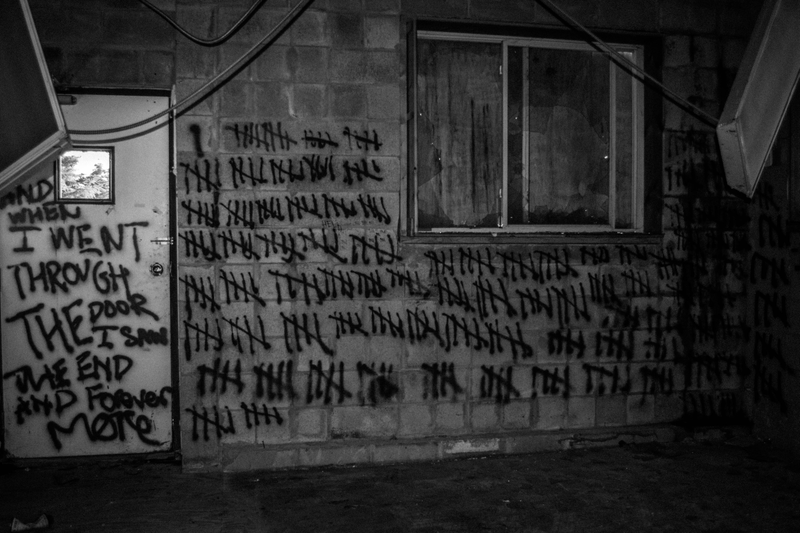 AND
WHEN
I WENT
THROUGH
THE DOOR
I SAW
THE END
AND FOREVER
MORE